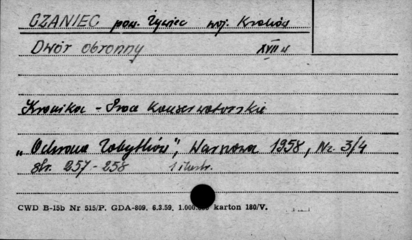 CZANIEC pow. Żywiec woj. Kraków
Dwór obronny XVII w
Kronika - Prace Konserwatorskie
„Ochrona Zabytków", Warszawa 1958, Nr. 3/4
str. 257-258 1 ilustr.
CWD B-15b Nr 515/P. GDA-809. 6.3.59. karton 180/V.